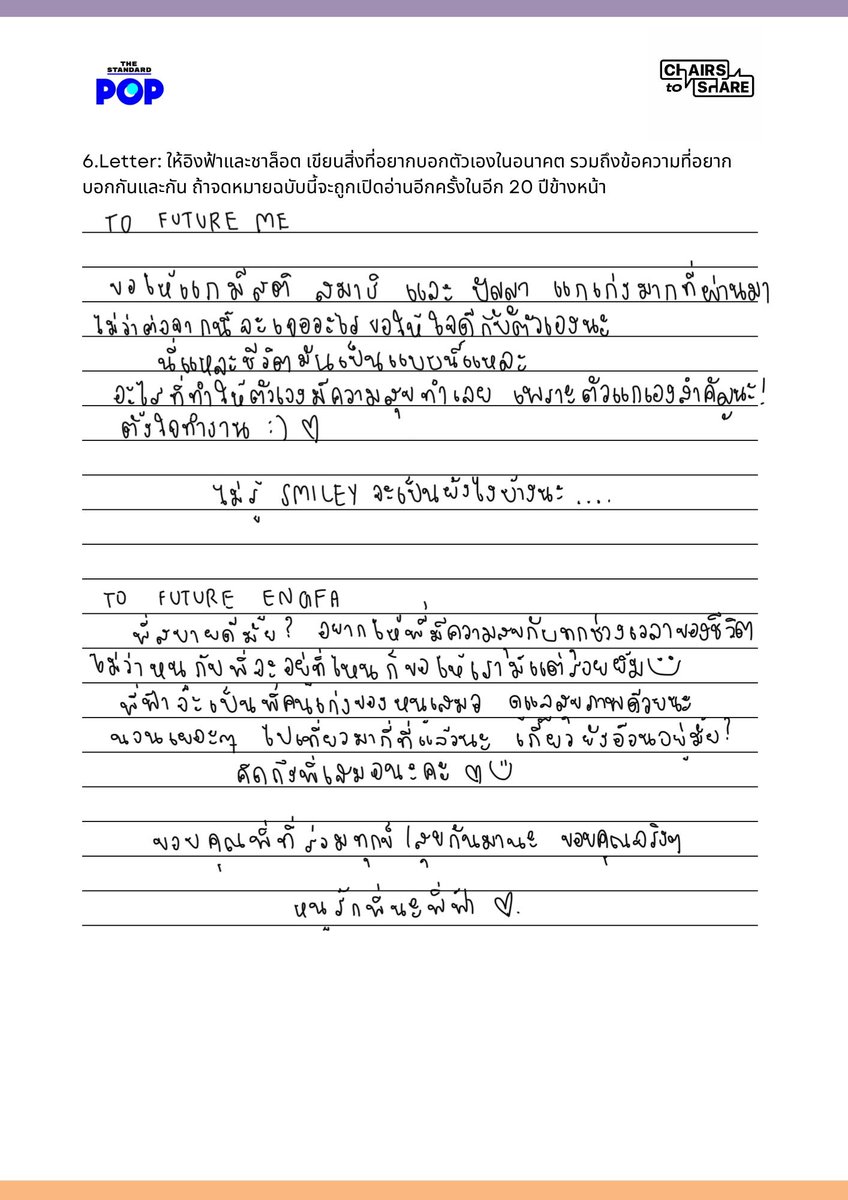 THE
STANDARD
POP
CHAIRS
to SHARE
6.Letter: ให้อิงฟ้าและชาล็อต เขียนสิ่งที่อยากบอกตัวเองในอนาคต รวมถึงข้อความที่อยาก
บอกกันและกัน ถ้าจดหมายฉบับนี้จะถูกเปิดอ่านอีกครั้งในอีก 20 ปีข้างหน้า
TO FUTURE ME
ขอให้แกมีสติ สมาธิ และ ปัญญา แกเก่งมากที่ผ่านมา
ไม่ว่าต่อจากนี้จะเจออะไร ขอให้ใจดีกับตัวเองนะ
นี่แหละชีวิตมันเป็นแบบนี้แหละ
อะไรที่ทำให้ตัวเองมีความสุขทำเลย เพราะตัวแกเองสำคัญนะ!
ตั้งใจทำงาน :) ♡
ไม่รู้ SMILEY จะเป็นยังไงบ้างนะ ....
TO FUTURE ENGFA
พี่สบายดีมั้ย? อยากให้พี่มีความสุขกับทุกช่วงเวลาของชีวิต
ไม่ว่าหนูกับพี่จะอยู่ที่ไหน ก็ขอให้เรามีแต่รอยยิ้ม
พี่ฟ้าจะเป็นพี่คนเก่งของหนูเสมอ ดูแลสุขภาพด้วยนะ
นอนเยอะๆ ไปเที่ยวมากี่ที่แล้วนะ ยังอ้วนอยู่มั้ย?
คิดถึงพี่เสมอนะคะ ♡
ขอบคุณพี่ที่ร่วมทุกข์ / สุขกันมานะ ขอบคุณจริงๆ
หนูรักพี่นะพี่ฟ้า ♡.